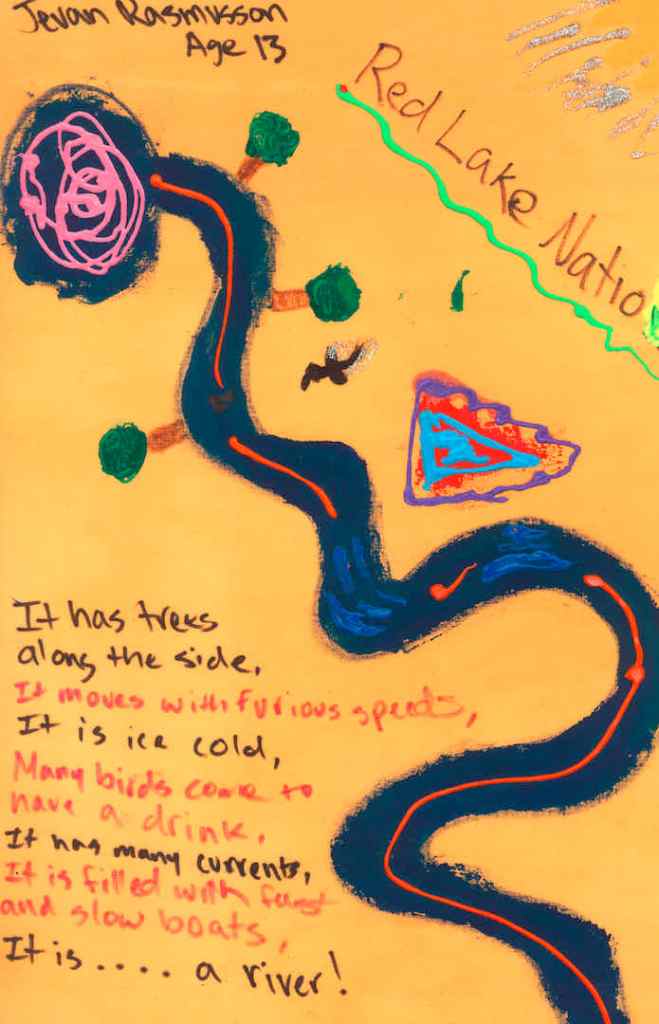 Jevan Rasmusson
Age 13
Red Lake Natio
It has trees
along the side,
It moves with furious speeds,
It is ice cold,
Many birds come to
have a drink,
It has many currents,
It is filled with fast
and slow boats,
It is .... a river!